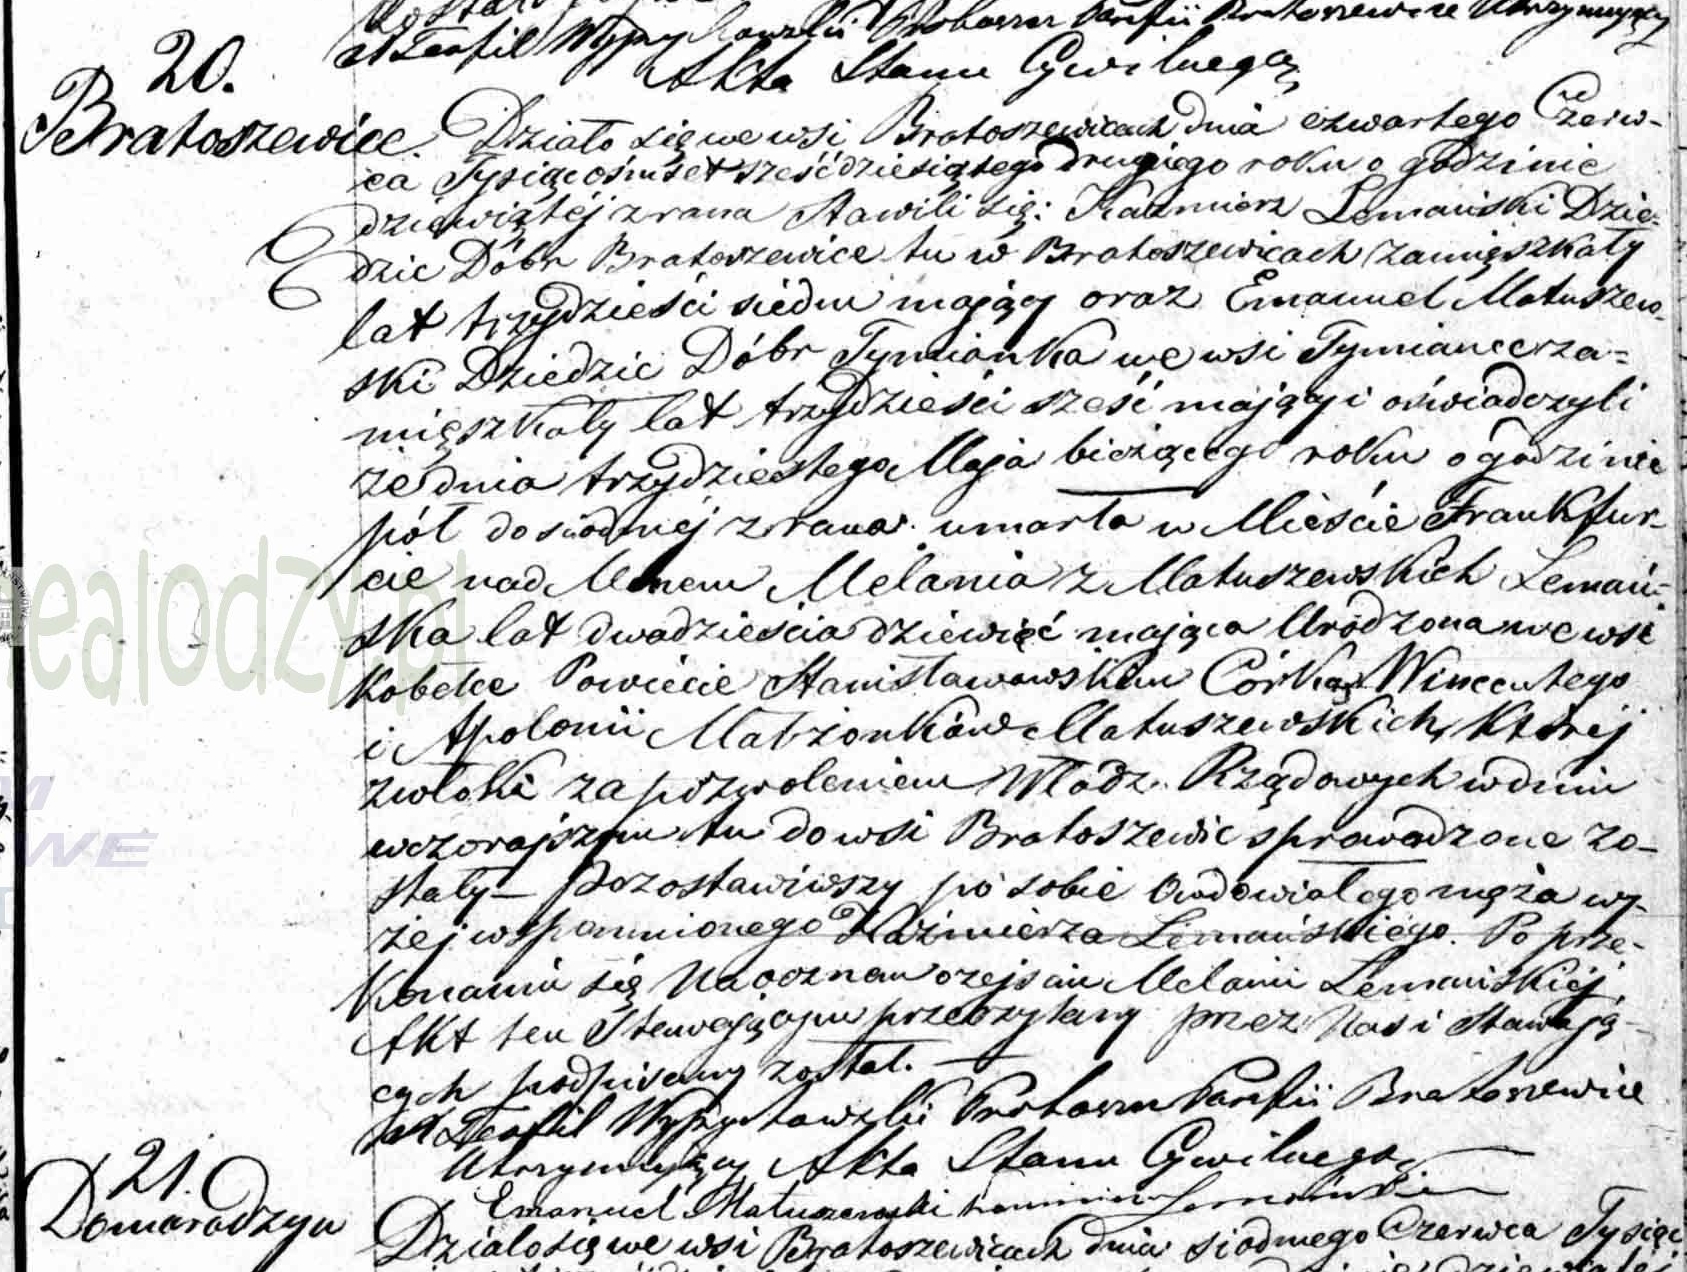 X Teofil Wyprzychowski Proboszcz Parafii Bratoszewice Utrzymujący
Akta Stanu Cywilnego
20.
Bratoszewice. Działo się we wsi Bratoszewicach dnia czwartego Czerw-
ca Tysiąc ośmset sześćdziesiątego drugiego roku o godzinie
dziewiątéj z rana Stawili się: Kazimierz Lemański Dzie-
dzic Dóbr Bratoszewice tu w Bratoszewicach zamięszkały
lat trzydzieści siedm mający oraz Emanuel Matuszew-
ski Dziedzic Dóbr Tymianka we wsi Tymiance za-
mięszkały lat trzydzieści sześć mający i oświadczyli
że dnia trzydziestego Maja bieżącego roku o godzinie
pół do siódméj z rana umarła w Mieście Frankfur-
cie nad Menem Melania z Matuszewskich Lemań-
ska lat dwadzieścia dziewięć mająca Urodzona we wsi
Kobelce Powiecie Stanisławowskim Córka Wincentego
i Apolonii Małżonków Matuszewskich, któréj
zwłoki za pozwoleniem Władz Rządowych w dniu
wczorajszym tu do wsi Bratoszewic sprowadzone zo-
stały – Pozostawiwszy po sobie Owdowiałego męża wy-
żéj wspomnionego Kazimierza Lemańskiego. Po prze-
konaniu się Naocznem o zejściu Melanii Lemańskiéj
Akt ten Stawającym przeczytany przez Nas i Stawają-
cych podpisany został.
X Teofil Wyprzychowski Proboszcz Parafii Bratoszewice
Utrzymujący Akta Stanu Cywilnego
Emanuel Matuszewski Kazimierz Lemański
21.
Domaradzyn Działo się we wsi Bratoszewicach dnia siódmego Czerwca Tysiąc
ealodzy.pl